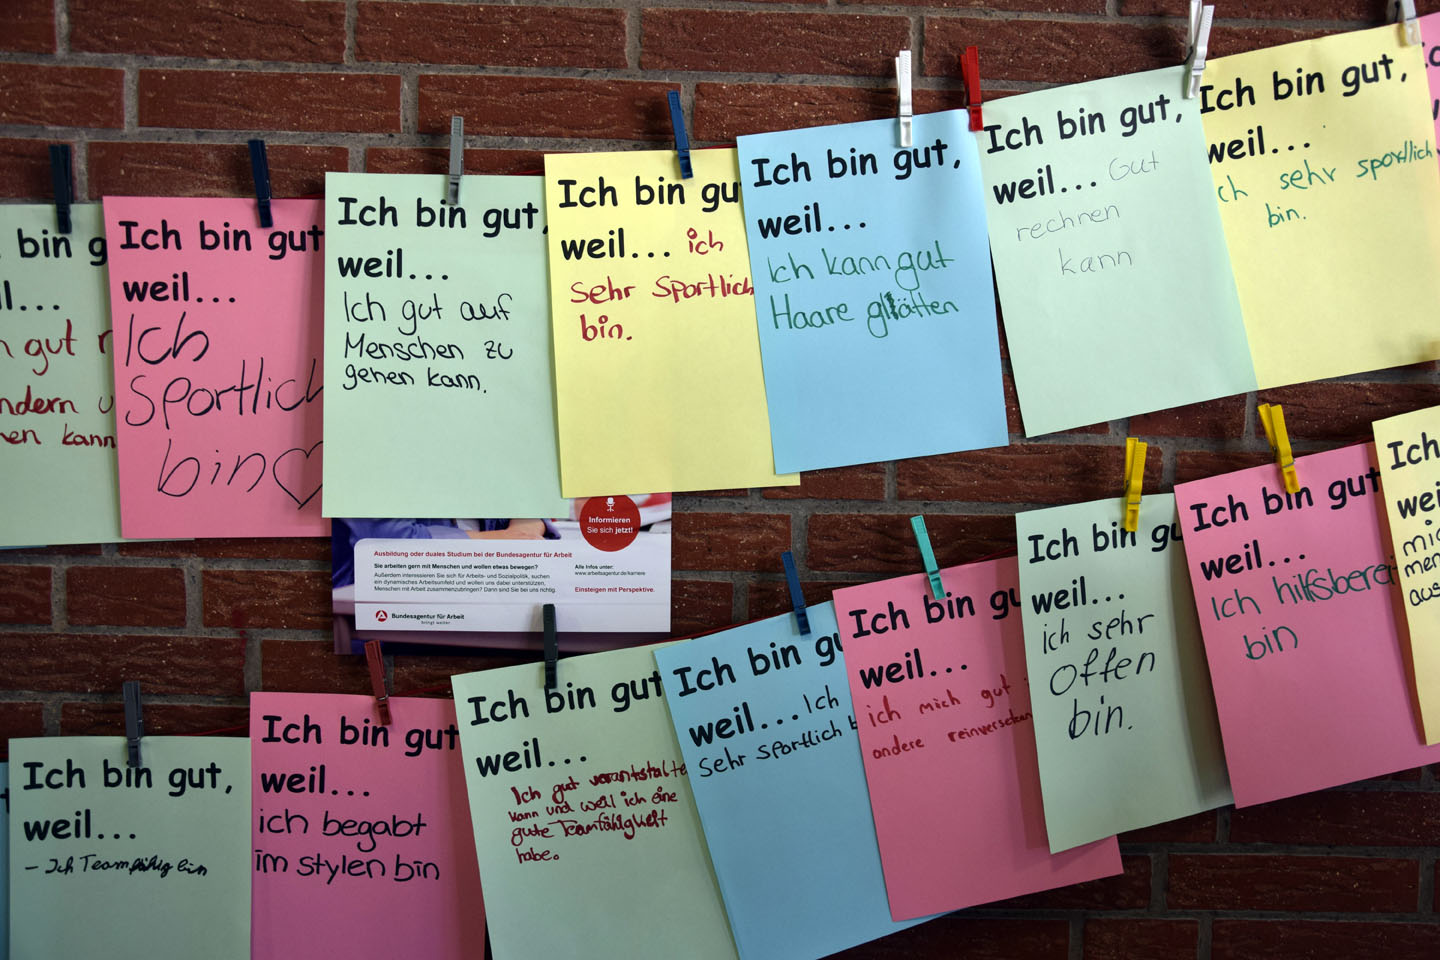 bin g
n gut
ndern u
en kann
Ich bin gut
weil...
Ich
Sportlich
bin
Ich bin gut,
weil...
Ich gut auf
Menschen zu
gehen kann.
Ich bin gu
weil... ich
sehr sportlich
bin.
Ich bin gut,
weil...
Ich kann gut
Haare glätten
Ich bin gut,
weil... Gut
rechnen
kann
Ich bin gut,
weil...
ch sehr sportlich
bin.
Informieren
Sie sich jetzt!
Ausbildung oder duales Studium bei der Bundesagentur für Arbeit
Sie arbeiten gern mit Menschen und wollen etwas bewegen?
Außerdem interessieren Sie sich für Arbeits- und Sozialpolitik, suchen
ein dynamisches Arbeitsumfeld und wollen uns dabei unterstützen,
Menschen mit Arbeit zusammenzubringen? Dann sind Sie bei uns richtig.
Alle Infos unter:
www.arbeitsagentur.de/karriere
Einsteigen mit Perspektive.
Bundesagentur für Arbeit
bringt weiter.
Ich bin gut,
weil...
- Ich Teamfähig bin
Ich bin gut
weil...
ich begabt
im stylen bin
Ich bin gut
weil...
Ich gut verantstalte
kann und weil ich eine
gute Teamfähigkeit
habe.
Ich bin gu
weil... Ich
sehr sportlich b
Ich bin gu
weil...
ich mich gut
andere reinversetzen
Ich bin gu
weil...
ich sehr
offen
bin.
Ich bin gut
weil...
Ich hilfsberei
bin
Ich
wei
mic
men
aus